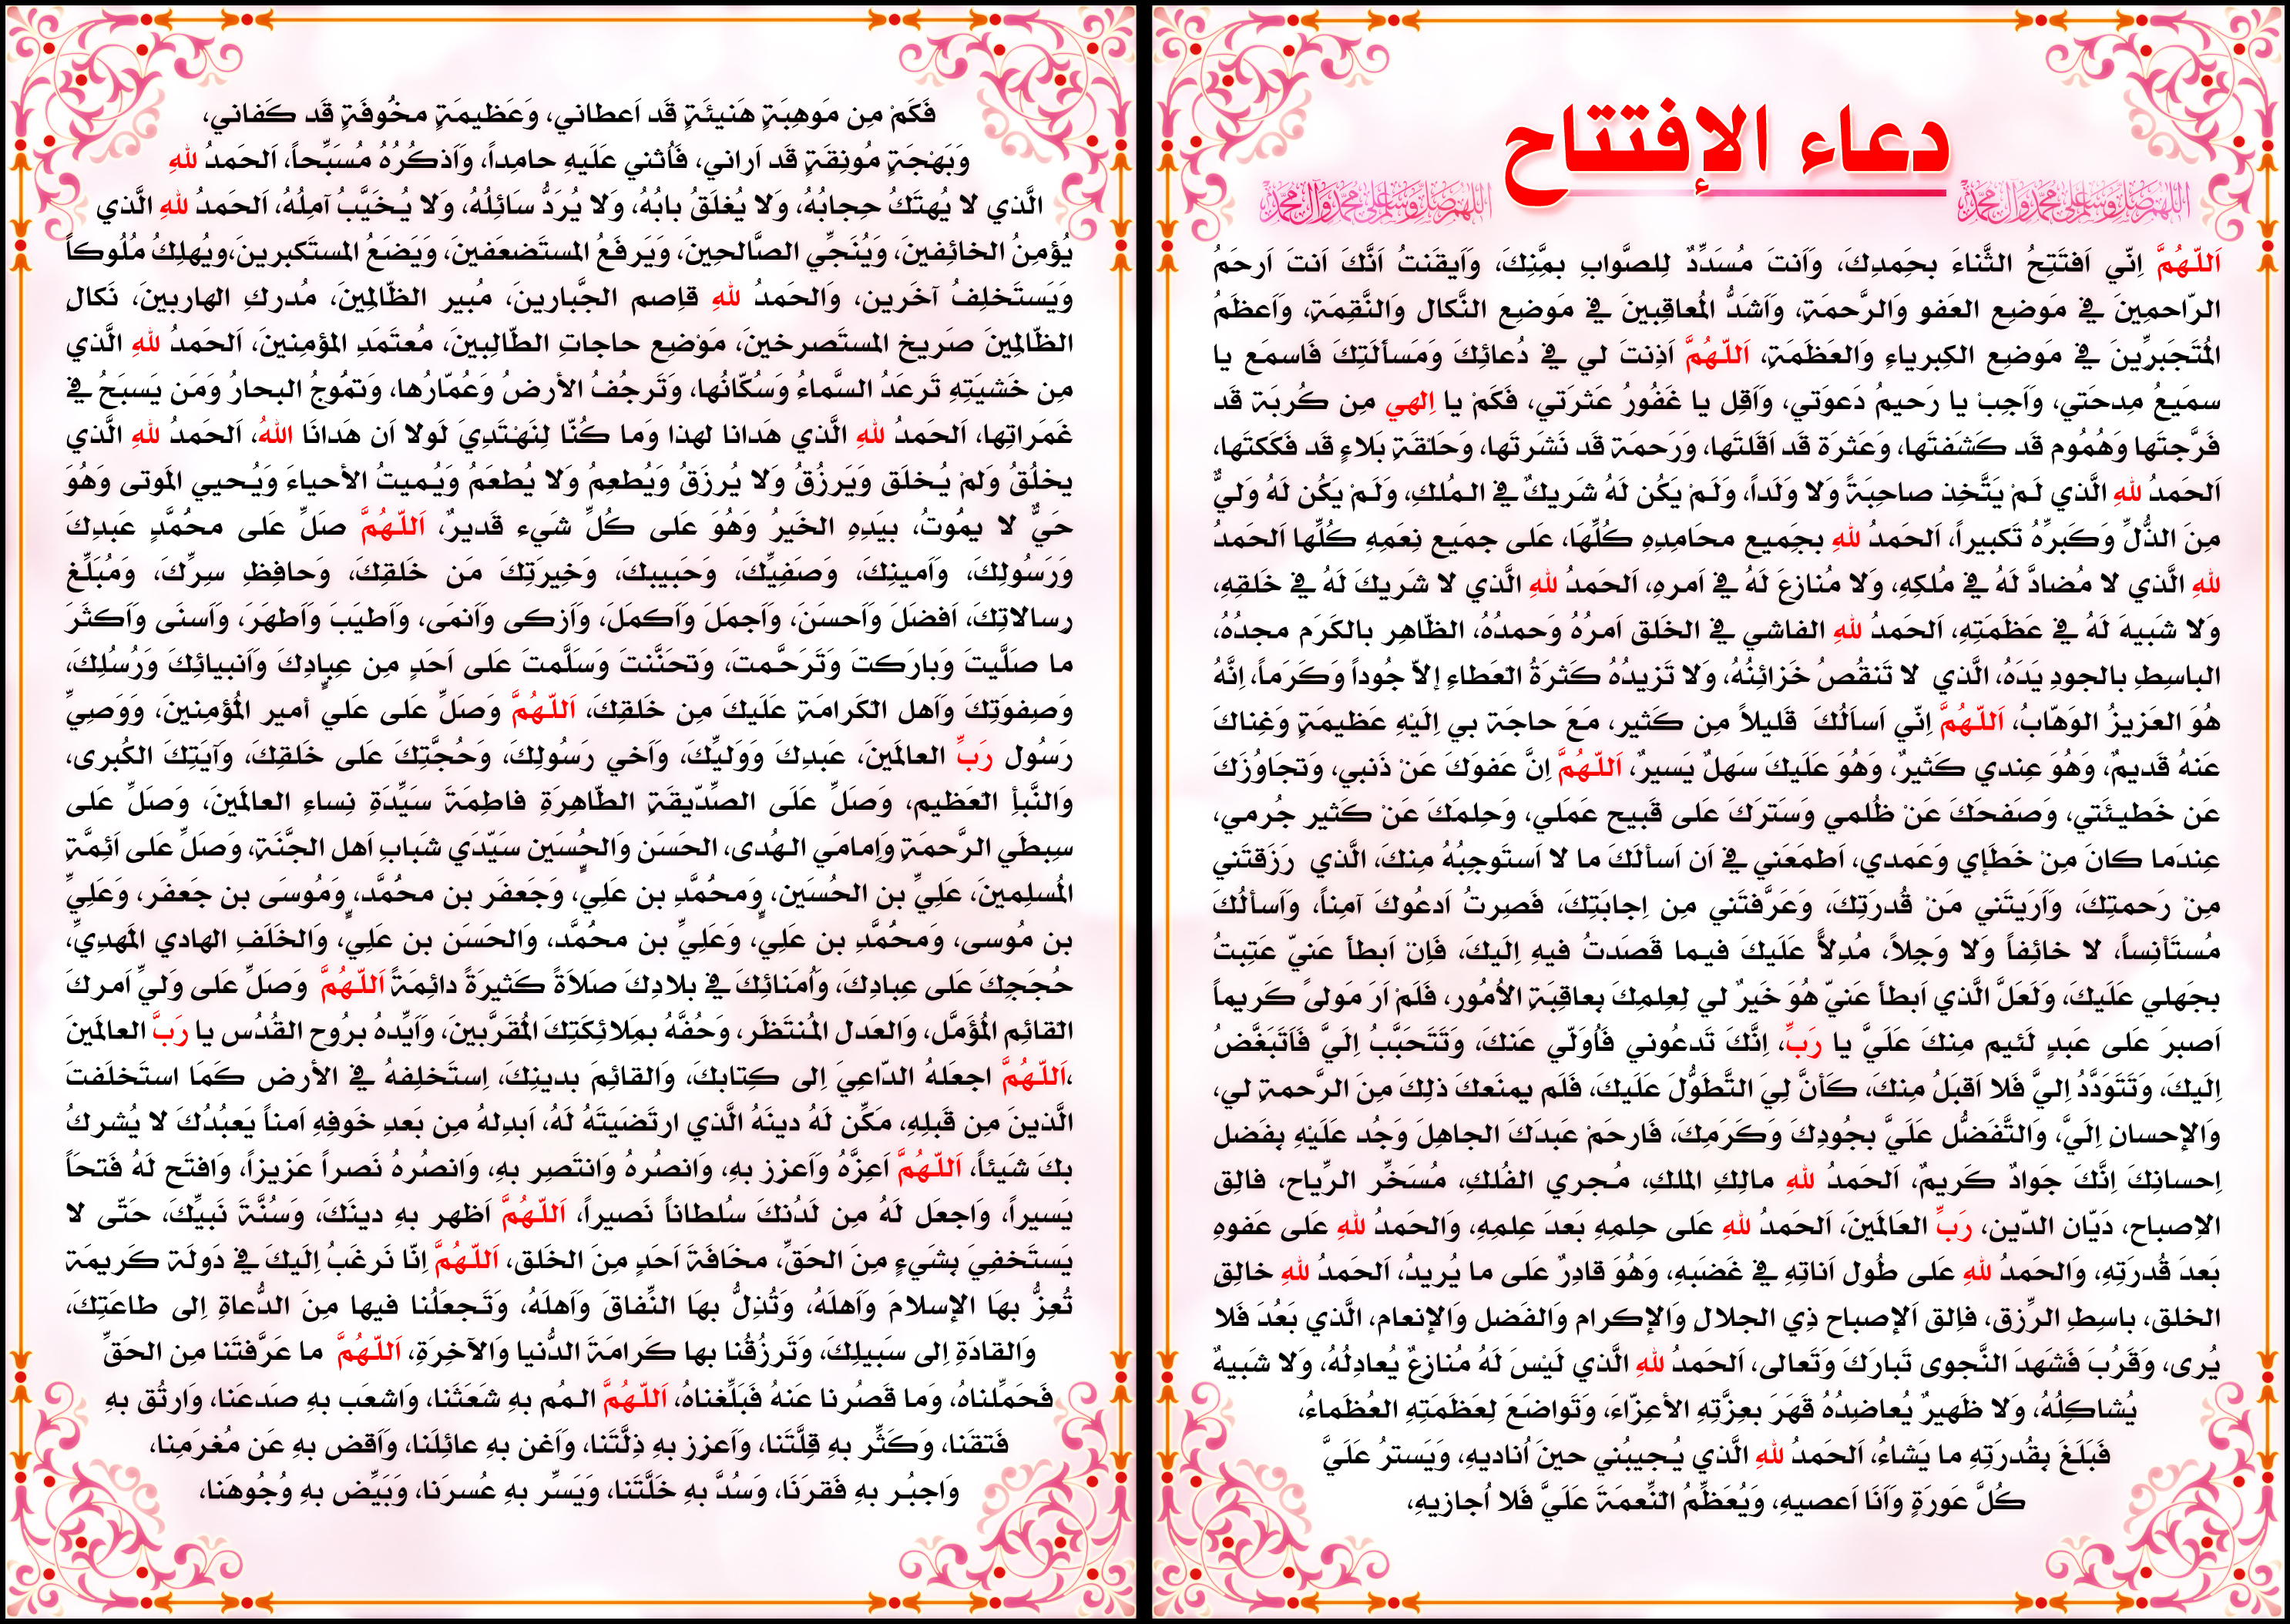 دعاء الإفتتاح
اللهم صل وسلم على محمد وآل محمد
اللهم صل وسلم على محمد وآل محمد
اَللّهُمَّ اِنّي اَفتَتِحُ الثَّناءَ بحَِمدِكَ، وَاَنتَ مُسَدِّدٌ لِلصَّوابِ بمَِّنِكَ، وَاَيقَنتُ اَنَّكَ اَنتَ اَرحَمُ
الرّاحمِينَ في مَوضِعِ العَفوِ وَالرَّحمَةِ، وَاَشَدُّ المُعاقِبِينَ في مَوضِعِ النَّكالِ وَالنَّقِمَةِ، وَاَعظَمُ
المُتَجَبرِّينَ في مَوضِعِ الكِبرياءِ وَالعَظَمَةِ، اَللّهُمَّ اَذِنتَ لي في دُعائِكَ وَمَسأَلَتِكَ فَاسمَع يا
سمَيعُ مِدحَتي، وَاَجِبْ يا رَحيمُ دَعوَتي، وَاَقِل يا غَفُورُ عَثرَتي، فَكَمْ يا اِلهي مِن كُربَة قَد
فَرَّجتَها وَهُمُوم قَد كَشَفتَها، وَعَثرَة قَد اَقَلتَها، وَرَحمَة قَد نَشَرتَها، وَحَلْقَةِ بَلاءٍ قَد فَكَكتَها،
اَلحَمدُ للهِ الَّذي لَمْ يَتَّخِذ صاحِبَةً وَلا وَلَداً، وَلَمْ يَكُن لَهُ شَريكٌ في المُلكِ، وَلَمْ يَكُن لَهُ وَليٌّ
مِنَ الذُّلِّ وَكَبرِّهُ تَكبيراً، اَلحَمدُ للهِ بجَِميعِ محَامِدِهِ كُلِّهَا، عَلى جمَيعِ نِعَمِهِ كُلِّها اَلحَمدُ
للهِ الَّذي لا مُضادَّ لَهُ في مُلكِهِ، وَلا مُنازِعَ لَهُ في اَمرِهِ، اَلحَمدُ للهِ الَّذي لا شَريكَ لَهُ في خَلقِهِ،
وَلا شَبيهَ لَهُ في عَظَمَتِهِ، اَلحَمدُ للهِ الفاشي في الخَلقِ اَمرُهُ وَحمدُهُ، الظّاهِرِ بالكَرَمِ مجدُهُ،
الباسِطِ بالجودِ يَدَهُ، الَّذي لا تَنقُصُ خَزائِنُهُ، وَلا تَزيدُهُ كَثرَةُ العَطاءِ إلاّ جُوداً وَكَرَماً، اِنَّهُ
هُوَ العَزيزُ الوَهّابُ، اَللّهُمَّ اِنّي اَسأَلُكَ قَليلاً مِن كَثيرٍ، مَعَ حاجَة بي اِلَيْهِ عَظيمَةٍ وَغِناكَ
عَنهُ قَديمٌ، وَهُوَ عِندي كَثيرٌ، وَهُوَ عَلَيكَ سَهلٌ يَسيرٌ، اَللّهُمَّ اِنَّ عَفوَكَ عَنْ ذَنبي، وَتجَاوُزَكَ
عَن خَطيئَتي، وَصَفحَكَ عَنْ ظُلمي وَسَترَكَ عَلى قَبيحِ عَمَلي، وَحِلمَكَ عَنْ كَثيرِ جُرمي،
عِندَما كانَ مِنْ خَطَإي وَعَمدي، اَطمَعَني في اَن اَسأَلَكَ ما لا اَستَوجِبُهُ مِنكَ، الَّذي رَزَقتَني
مِنْ رَحمتِكَ، وَاَرَيتَني مَنْ قُدرَتِكَ، وَعَرَّفتَني مِن اِجابَتِكَ، فَصِرتُ اَدعُوكَ آمِناً، وَاَسألُكَ
مُستَأنِساً، لا خائِفاً وَلا وَجِلاً، مُدِلاًّ عَلَيكَ فيما قَصَدتُ فيهِ اِلَيكَ، فَاِنْ اَبطأَ عَنيّ عَتِبتُ
بجَهلي عَلَيكَ، وَلَعَلَّ الَّذي اَبطأَ عَنيّ هُوَ خَيرٌ لي لِعِلمِكَ بِعاقِبَةِ الأمُورِ، فَلَمْ اَرَ مَولىً كَريماً
اَصبرَ عَلى عَبدٍ لَئيمٍ مِنكَ عَلَيَّ يا رَبِّ، اِنَّكَ تَدعُوني فَاُوَلّي عَنكَ، وَتَتَحَبَّبُ اِلَيَّ فَاَتَبَغَّضُ
اِلَيكَ، وَتَتَوَدَّدُ اِليَّ فَلا اَقبَلُ مِنكَ، كَأنَّ لِيَ التَّطَوُّلَ عَلَيكَ، فَلَم يمنَعكَ ذلِكَ مِنَ الرَّحمةِ لي،
وَالإحسانِ اِلَيَّ، وَالتَّفَضُّلِ عَلَيَّ بجُودِكَ وَكَرَمِكَ، فَارحَمْ عَبدَكَ الجاهِلَ وَجُد عَلَيْهِ بِفَضلِ
اِحسانِكَ اِنَّكَ جَوادٌ كَريمٌ، اَلحَمدُ للهِ مالِكِ الملكِ، مُجري الفُلكِ، مُسَخِّرِ الرِّياحِ، فالِقِ
الإصباحِ، دَيّانِ الدّينِ، رَبِّ العَالَمينَ، اَلحَمدُ للهِ عَلى حِلمِهِ بَعدَ عِلمِهِ، وَالحَمدُ للهِ عَلى عَفوِهِ
بَعدَ قُدرَتِهِ، وَالحَمدُ للهِ عَلى طُولِ اَناتِهِ في غَضَبِهِ، وَهُوَ قادِرٌ عَلى ما يُريدُ، اَلحَمدُ للهِ خالِقِ
الخلقِ، باسِطِ الرِّزقِ، فاِلقِ اَلإصباحِ ذِي الجلالِ وَالإكرامِ وَالفَضلِ وَالإنعامِ، الَّذي بَعُدَ فَلا
يُرى، وَقَرُبَ فَشَهدَ النَّجوى تَبارَكَ وَتَعالى، اَلحَمدُ للهِ الَّذي لَيْسَ لَهُ مُنازِعٌ يُعادِلُهُ، وَلا شَبيهٌ
يُشاكِلُهُ، وَلا ظَهيرٌ يُعاضِدُهُ قَهَرَ بعِزَّتِهِ الأعِزّاءَ، وَتَواضَعَ لِعَظَمَتِهِ العُظَماءُ،
فَبَلَغَ بِقُدرَتِهِ ما يَشاءُ، اَلحَمدُ للهِ الَّذي يُجيبُني حينَ اُناديهِ، وَيَسترُ عَلَيَّ
كُلَّ عَورَةٍ وَاَنَا اَعصيهِ، وَيُعَظِّمُ النِّعمَةَ عَلَيَّ فَلا اُجازيهِ،
فَكَمْ مِن مَوهِبَةٍ هَنيئَةٍ قَد اَعطاني، وَعَظيمَةٍ مخُوفَةٍ قَد كَفاني،
وَبَهْجَةٍ مُونِقَةٍ قَد اَراني، فَاُثني عَلَيهِ حامِداً، وَاَذكُرُهُ مُسَبِّحاً، اَلحَمدُ للهِ
الَّذي لا يُهتَكُ حِجابُهُ، وَلا يُغلَقُ بابُهُ، وَلا يُرَدُّ سَائِلُهُ، وَلا يُخَيَّبُ آمِلُهُ، اَلحَمدُ للهِ الَّذي
يُؤمِنُ الخائِفينَ، وَيُنَجِّي الصَّالحِينَ، وَيَرفَعُ المستَضعَفينَ، وَيَضَعُ المستَكبرينَ،ويُهلِكُ مُلُوكاً
وَيَستَخلِفُ آخَرين، وَالحَمدُ للهِ قاِصمِ الجَّبارينَ، مُبيرِ الظّالِمِينَ، مُدركِ الهاربينَ، نَكالِ
الظّالِمِينَ صَريخِ المستَصرخينَ، مَوْضِعِ حاجاتِ الطّالِبينَ، مُعتَمَدِ المؤمِنينَ، اَلحَمدُ للهِ الَّذي
مِن خَشيَتِهِ تَرعَدُ السَّماءُ وَسُكّانُها، وَتَرجُفُ الأرضُ وَعُمّارُها، وَتمُوجُ البحارُ وَمَن يَسبَحُ في
غَمَراتِها، اَلحَمدُ للهِ الَّذي هَدانا لهذا وَما كُنّا لِنَهْتَدِيَ لَولا اَن هَدانَا اللهُ، اَلحَمدُ للهِ الَّذي
يخلُقُ وَلَمْ يُخلَق وَيَرزُقُ وَلا يُرزَقُ وَيُطعِمُ وَلا يُطعَمُ وَيُميتُ الأحياءَ وَيُحيي المَوتى وَهُوَ
حَيٌّ لا يمُوتُ، بيَدِهِ الخَيرُ وَهُوَ عَلى كُلِّ شَيء قَديرٌ، اَللّهُمَّ صَلِّ عَلى محُمَّدٍ عَبدِكَ
وَرَسُولِكَ، وَاَمينِكَ، وَصَفيِّكَ، وَحَبيبكَ، وَخِيرَتِكَ مَن خَلقِكَ، وَحافِظِ سِرِّكَ، وَمُبَلِّغِ
رسالاتِكَ، اَفضَلَ وَاَحسَنَ، وَاَجمَلَ وَاَكمَلَ، وَاَزكى وَاَنمَى، وَاَطيَبَ وَاَطهَرَ، وَاَسنَى وَاَكثَرَ
ما صَلَّيتَ وَبارَكتَ وَتَرَحَّمتَ، وَتحَنَّنتَ وَسَلَّمتَ عَلى اَحَدٍ مِن عِبادِكَ وَاَنبيائِكَ وَرُسُلِكَ،
وَصِفوَتِكَ وَاَهلِ الكَرامَةِ عَلَيكَ مِن خَلقِكَ، اَللّهُمَّ وَصَلِّ عَلى عَليٍ أميرِ المُؤمِنينَ، وَوَصِيِّ
رَسُولِ رَبِّ العالَمَينَ، عَبدِكَ وَوَليِّكَ، وَاَخي رَسُولِكَ، وَحُجَّتِكَ عَلى خَلقِكَ، وَآيَتِكَ الكُبرى،
وَالنَّبأِ العَظيمِ، وَصَلِّ عَلَى الصِّدّيقَةِ الطّاهِرَةِ فاطِمَةَ سَيِّدَةِ نِساءِ العالَمَينَ، وَصَلِّ عَلى
سِبطَيِ الرَّحمَةِ وَاِمامَي الهُدى، الحَسَنِ وَالحُسَينِ سَيّدَي شَبابِ اَهلِ الجَنَّةِ، وَصَلِّ عَلى اَئِمَّةِ
المُسلِمينَ، عَلِيِّ بن الحُسَينِ، وَمحُمَّدِ بن عَلِيٍ، وَجَعفَرِ بن محُمَّد، وَمُوسَى بن جَعفَر، وَعَلِيِّ
بن مُوسى، وَمحُمَّدِ بن عَلِيٍ، وَعَلِيِّ بن محُمَّد، وَالحَسَنِ بن عَلِي، وَالخَلَفِ الهادي المَهدِيِّ،
حُجَجِكَ عَلى عِبادِكَ، وَاُمَنائِكَ في بلادِكَ صَلاَةً كَثيرَةً دائِمَةً اَللّهُمَّ وَصَلِّ عَلى وَليِّ اَمرِكَ
القائِمِ المُؤَمَّلِ، وَالعَدلِ المُنتَظَرِ، وَحُفَّهُ بمَِلائِكَتِكَ المُقَرَّبينَ، وَاَيِّدهُ بروُحِ القُدُسِ يا رَبَّ العالَمَينَ
،اَللّهُمَّ اجعَلهُ الدّاعِيَ اِلى كِتابكَ، وَالقائِمَ بدينِكَ، اِستَخلِفهُ في الأرضِ كَمَا استَخلَفتَ
الَّذينَ مِن قَبلِهِ، مَكِّن لَهُ دينَهُ الَّذي ارتَضَيتَهُ لَهُ، اَبدِلهُ مِن بَعدِ خَوفِهِ اَمناً يَعبُدُكَ لا يُشركُ
بكَ شَيئاً، اَللّهُمَّ اَعِزَّهُ وَاَعزز بهِ، وَانصُرهُ وَانتَصِر بهِ، وَانصُرهُ نَصراً عَزيزاً، وَافتَح لَهُ فَتحَاً
يَسيراً، وَاجعَل لَهُ مِن لَدُنكَ سُلطاناً نَصيراً، اَللّهُمَّ اَظهِر بهِ دينَكَ، وَسُنَّةَ نَبيِّكَ، حَتّى لا
يَستَخفِيَ بِشَيءٍ مِنَ الحَقِّ، مخَافَةَ اَحَدٍ مِنَ الخَلقِ، اَللّهُمَّ اِنّا نَرغَبُ اِلَيكَ في دَولَة كَريمَة
تُعِزُّ بهَا الإسلامَ وَاَهلَهُ، وَتُذِلُّ بهَا النِّفاقَ وَاَهلَهُ، وَتَجعَلُنا فيها مِنَ الدُّعاةِ اِلى طاعَتِكَ،
وَالقادَةِ اِلى سَبيلِكَ، وَتَرزُقُنا بها كَرامَةَ الدُّنيا وَالآخِرَةِ، اَللّهُمَّ ما عَرَّفتَنا مِن الحَقِّ
فَحَمِّلناهُ، وَما قَصُرنا عَنهُ فَبَلِّغناهُ، اَللّهُمَّ المُم بهِ شَعَثَنا، وَاشعَب بهِ صَدعَنا، وَارتُق بهِ
فَتقَنا، وَكَثِّر بهِ قِلَّتَنا، وَاَعزز بهِ ذِلَّتَنا، وَاَغنِ بهِ عائِلَنا، وَاَقضِ بهِ عَن مُغرَمِنا،
وَاجبُر بهِ فَقرَنَا، وَسُدَّ بهِ خَلَّتَنا، وَيَسِّر بهِ عُسرَنا، وَبَيِّض بهِ وُجُوهَنا،